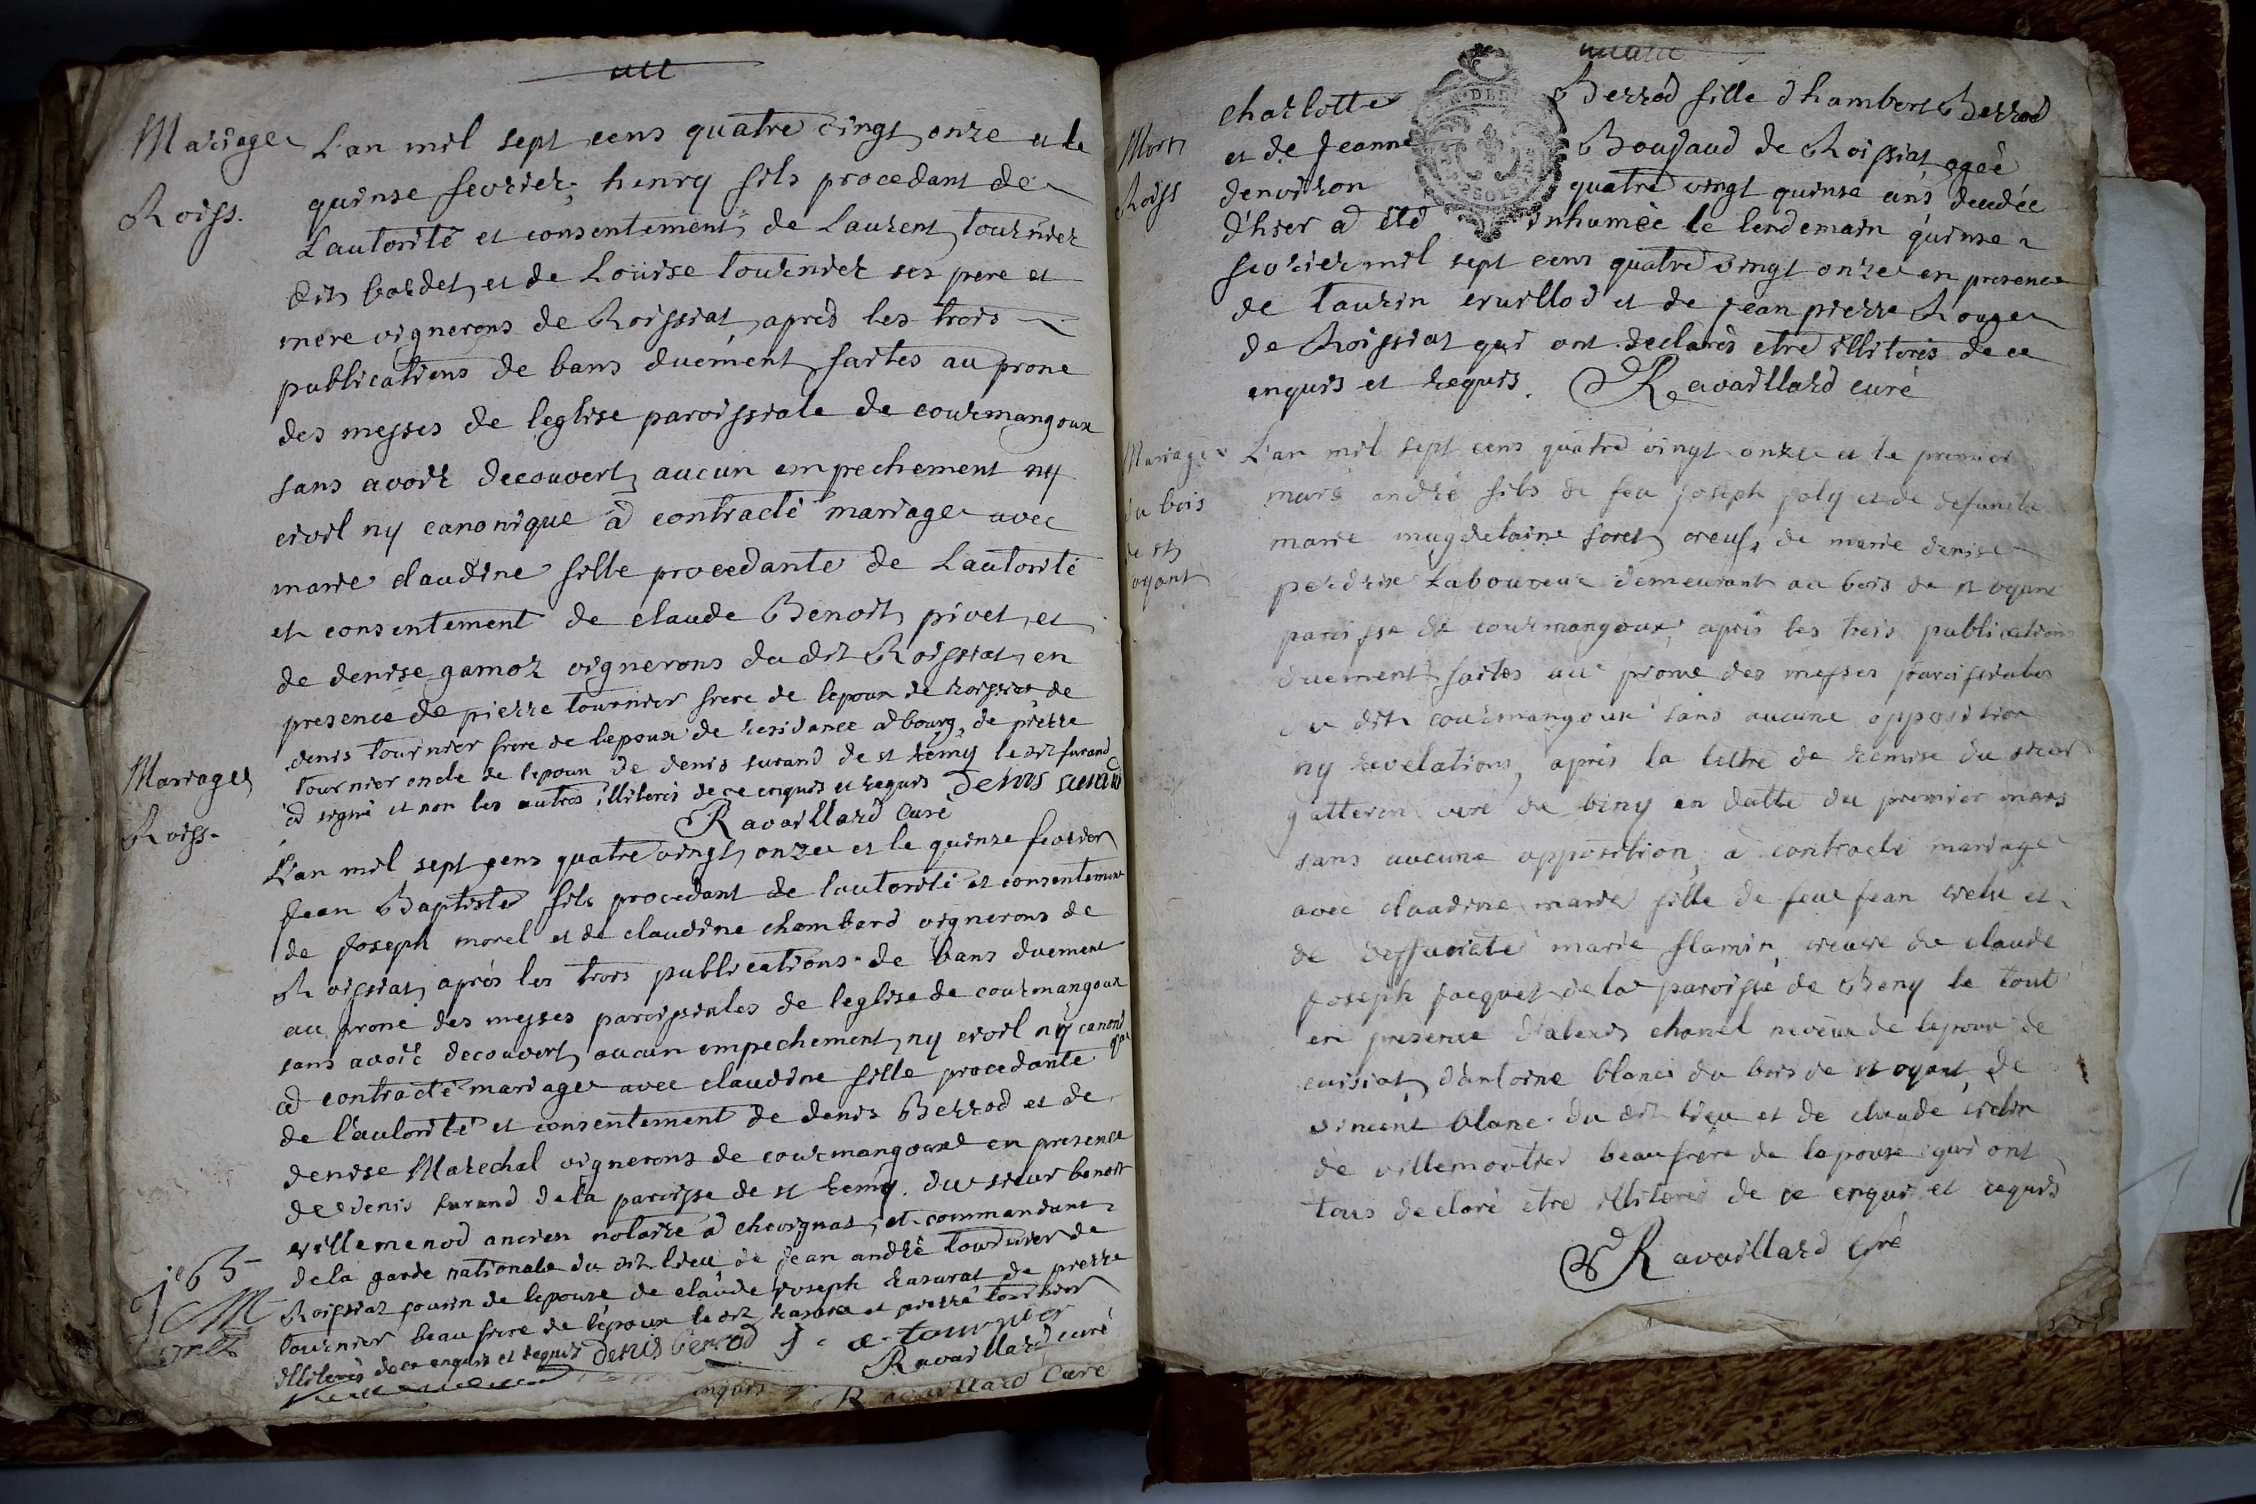 huit
Mariage
Roiss.
L'an mil sept cens quatre vingt onze et le
quinse fevrier, henry fils procedant de
Lautorité et consentement de Laurent tournier
dit bordet, et de Louise tournier ses pere et
mere vignerons de Roissiat après les trois
publications de bans duement faites au prone
des messes de leglise paroissiale de courmangoux
sans avoir decouvert aucun empechement ny
civil ny canonique a contracté mariage avec
marie claudine fille procedante de Lautorité
et consentement de claude Benoit pivet, et
de denise gamoz vignerons du dit Roissiat, en
presence de pierre tournier frere de lepoux de Roissiat de
denis tournier frere de lepoux de residance a bourg, de pierre
tournier oncle de lepoux de denis surand de st remy le dit surand
a signé et non les autres illiterés de ce enquis et requis denis surand
Ravaillard Curé
Mariage
Roiss.
L'an mil sept cens quatre vingt onze et le quinze fevrier
Jean Baptiste fils procedant de l'autorité et consentement
de Joseph morel et de claudine chambard vignerons de
Roissiat, après les trois publications de bans duement
au prone des messes paroissiales de leglise de courmangoux
sans avoir decouvert aucun empechement ny civil ny canoni
que
a contracté mariage avec claudine fille procedante
de l'autorité et consentement de denis Berrod et de
denise Marechal vignerons de courmangoux en presence
de denis surand de la paroisse de st remy. du sieur benoit
villemenod ancien notaire a chevignat, et commandant
de la garde nationale du dit lieu de Jean andré tournier de
Roissiat cousin de lepouse de claude joseph rasurat de pierre
tournier beau frere de lepoux le dit rasurat et pierre tournier
illiterés de ce enquis et requis denis berrod j. a. tournier
Ravaillard curé
enquis
Ravaillard Curé
Mort
Roiss
charlotte Berrod fille d'hambert Berrod
et de Jeanne Boujaud de Roissiat agée
denviron quatre vingt quinse ans decedée
d'hier a été inhumée le lendemain quinse
fevrier mil sept cens quatre vingt onze en presence
de taurin eruillod et de jean pierre Rouge
de Roissiat qui ont declarés etre illiterés de ce
enquis et requis. Ravaillard curé
Mariage
du bois
de st
oyant
L'an mil sept cens quatre vingt onze et le premier
mars andré fils de feu joseph poly et de defuncte
marie magdelaine foret, veuf de marie denise
perdrix Laboureur demeurant au bois de st oyant
paroisse de courmangoux, après les trois publications
duement faites au prone des messes paroissiales
du dit courmangoux sans aucune opposition
ny revelations, après la lettre de remise du sieur
gatteron curé de beny en datte du premier mars
sans aucune opposition, a contracté mariage
avec claudine marie fille de feu jean
de deffuncte marie flamin veuve de claude
Joseph Jacquet de la paroisse de Beny le tout
en presence d'alexis chanel neveux de lepoux de
cuisiat, d'antoine blanc du bois de st oyant, de
vincent blanc du dit lieu et de claude
de villemoutier beaufrere de lepouse qui ont
tous declaré etre illiterés de ce enquis et requis
Ravaillard Curé